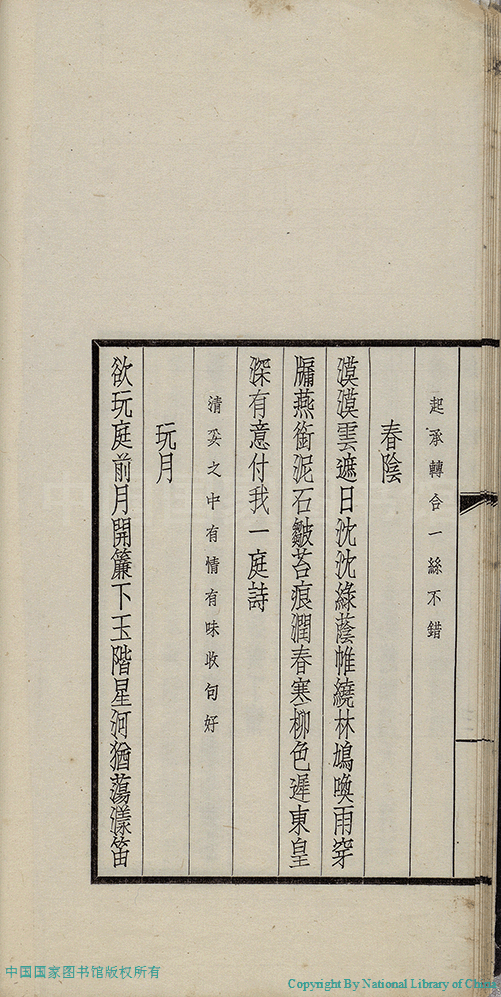 起承轉合一絲不錯
春陰
漠漠雲遮日沈沈綠蔭帷繞林鳩喚雨穿
牖燕銜泥石皺苔痕潤春寒柳色遲東皇
深有意付我一庭詩
清妥之中有情有味收句好
玩月
欲玩庭前月開簾下玉階星河猶蕩漾笛
中国国家图书馆版权所有
Copyright By National Library of China